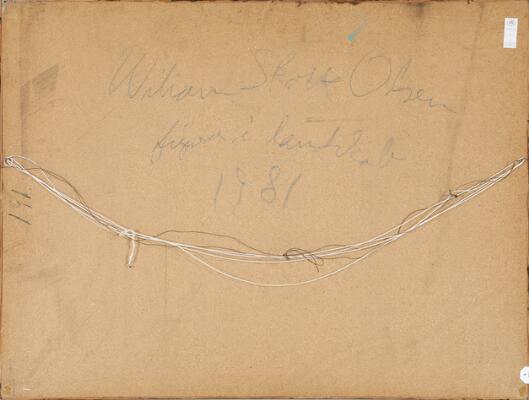 Wiliam Skotte Olsen
figurer i landskab
1981